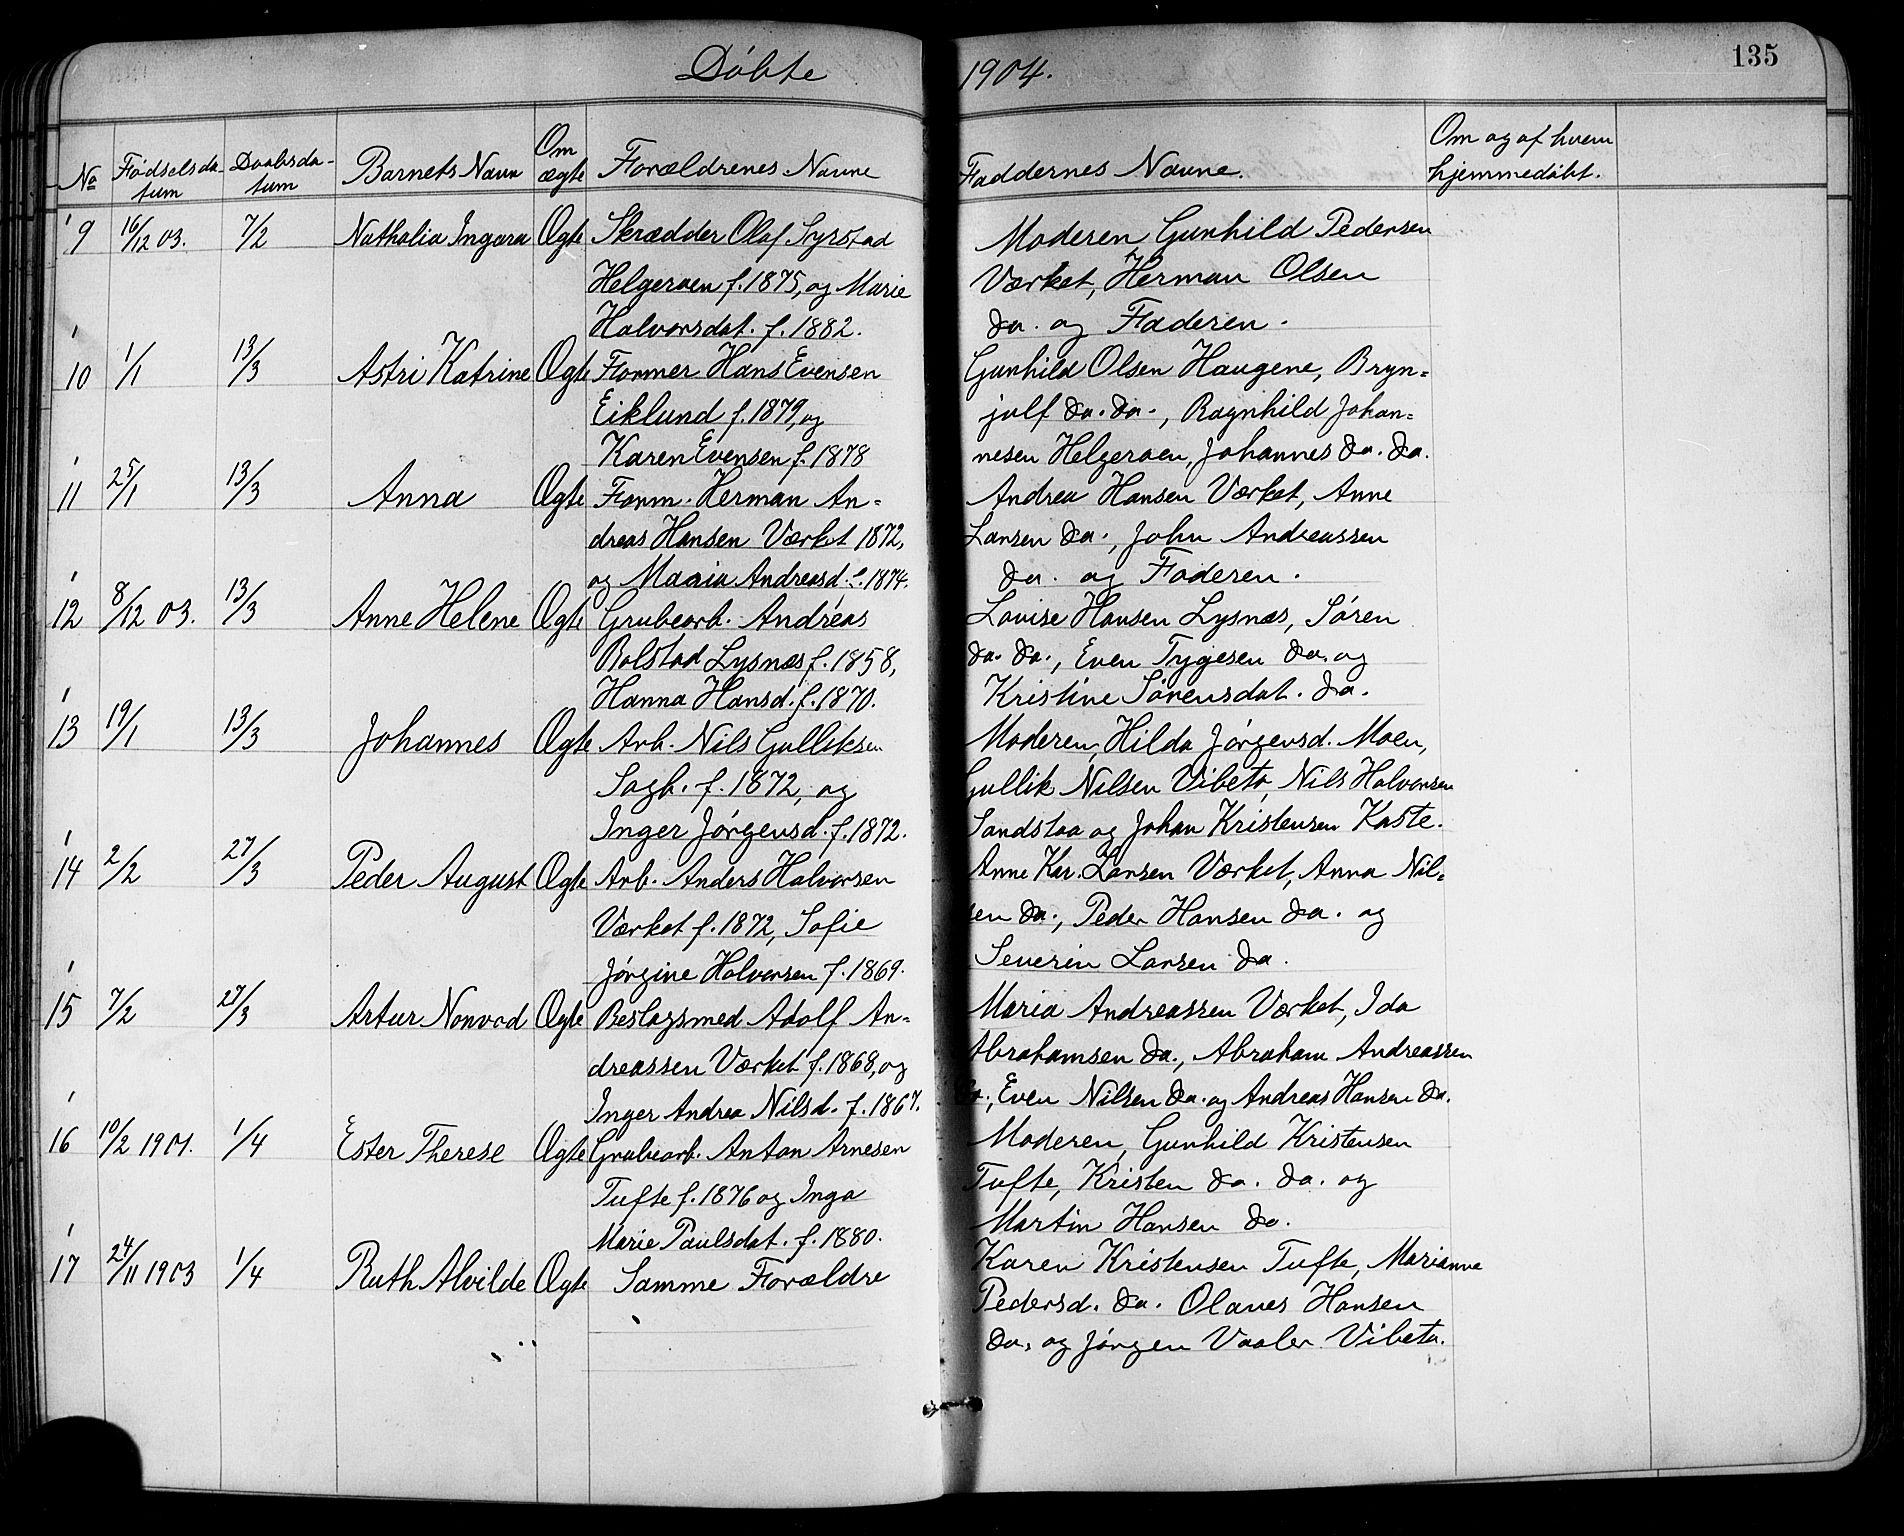 Døbte 1904.
135
No
Fødselsda-
tum
Daabsda-
tum
Barnets Navn
Om
ægte
Forældrenes Navne
Faddernes Navne.
Om og af hvem
hjemmedøbt.
9 16/12 03. 7/2 Nathalia Ingara Ægte Skrædder Olaf Syrstad
Helgeroen f. 1875, og Marie
Halvorsdat. f. 1882.
Moderen, Gunhild Pedersen
Værket, Herman Olsen
do. og Faderen.
10 1/1 13/3 Astri Katrine Ægte Former Hans Evensen
Eiklund f. 1879, og
Karen Evensen f. 1878
Gunhild Olsen Haugene, Bryn=
julf do. do., Ragnhild Johan=
nesen Helgeroen, Johannes do. do.
11 25/1 13/3 Anna Ægte Form. Herman An=
dreas Hansen Værket 1872,
og Maaria Andreasd. f. 1874.
Andrea Hansen Værket, Anne
Larsen do., John Andreassen
do. og Faderen.
12 8/12 03. 13/3 Anne Helene Ægte Grubearb. Andreas
Rolstad Lysnæs f. 1858,
Hanna Hansd. f. 1870.
Lovise Hansen Lysnæs, Søren
do. do., Even Tygesen do. og
Kristine Sørensdat. do.
13 19/1 13/3 Johannes Ægte Arb. Nils Gulliksen
Sagb. f. 1872, og
Inger Jørgensd. f. 1872.
Moderen, Hilda Jørgensd. Moen,
Gullik Nilsen Vibeto, Nils Halvorsen
Sandstaa og Johan Kristensen Kaste.
14 2/2 27/3 Peder August Ægte Arb. Anders Halvorsen
Værket f. 1872, Sofie
Jørgine Halvorsen f. 1869.
Anne Kar. Larsen Værket, Anna Nil=
sen do., Peder Hansen do. og
Severin Larsen do.
15 7/2 27/3 Artur Nonvod Ægte Beslagsmed Adolf An=
dreassen Værket f. 1868, og
Inger Andrea Nilsd. f. 1867.
Maria Andreassen Værket, Ida
Abrahamsen do., Abraham Andreassen
do., Even Nilsen do. og Andreas Hansen do.
16 10/2 1901. 1/4 Ester Therese Ægte Grubearb. Anton Arnesen
Tufte f. 1876 og Inga
Marie Paulsdat. f. 1880.
Moderen, Gunhild Kristensen
Tufte, Kristen do. do. og
Martin Hansen do.
17 24/11 1903 1/4 Ruth Alvilde Ægte Samme Forældre
Karen Kristensen Tufte, Marianne
Pedersd. do. Olaves Hansen
do. og Jørgen Vaaler Vibeto.